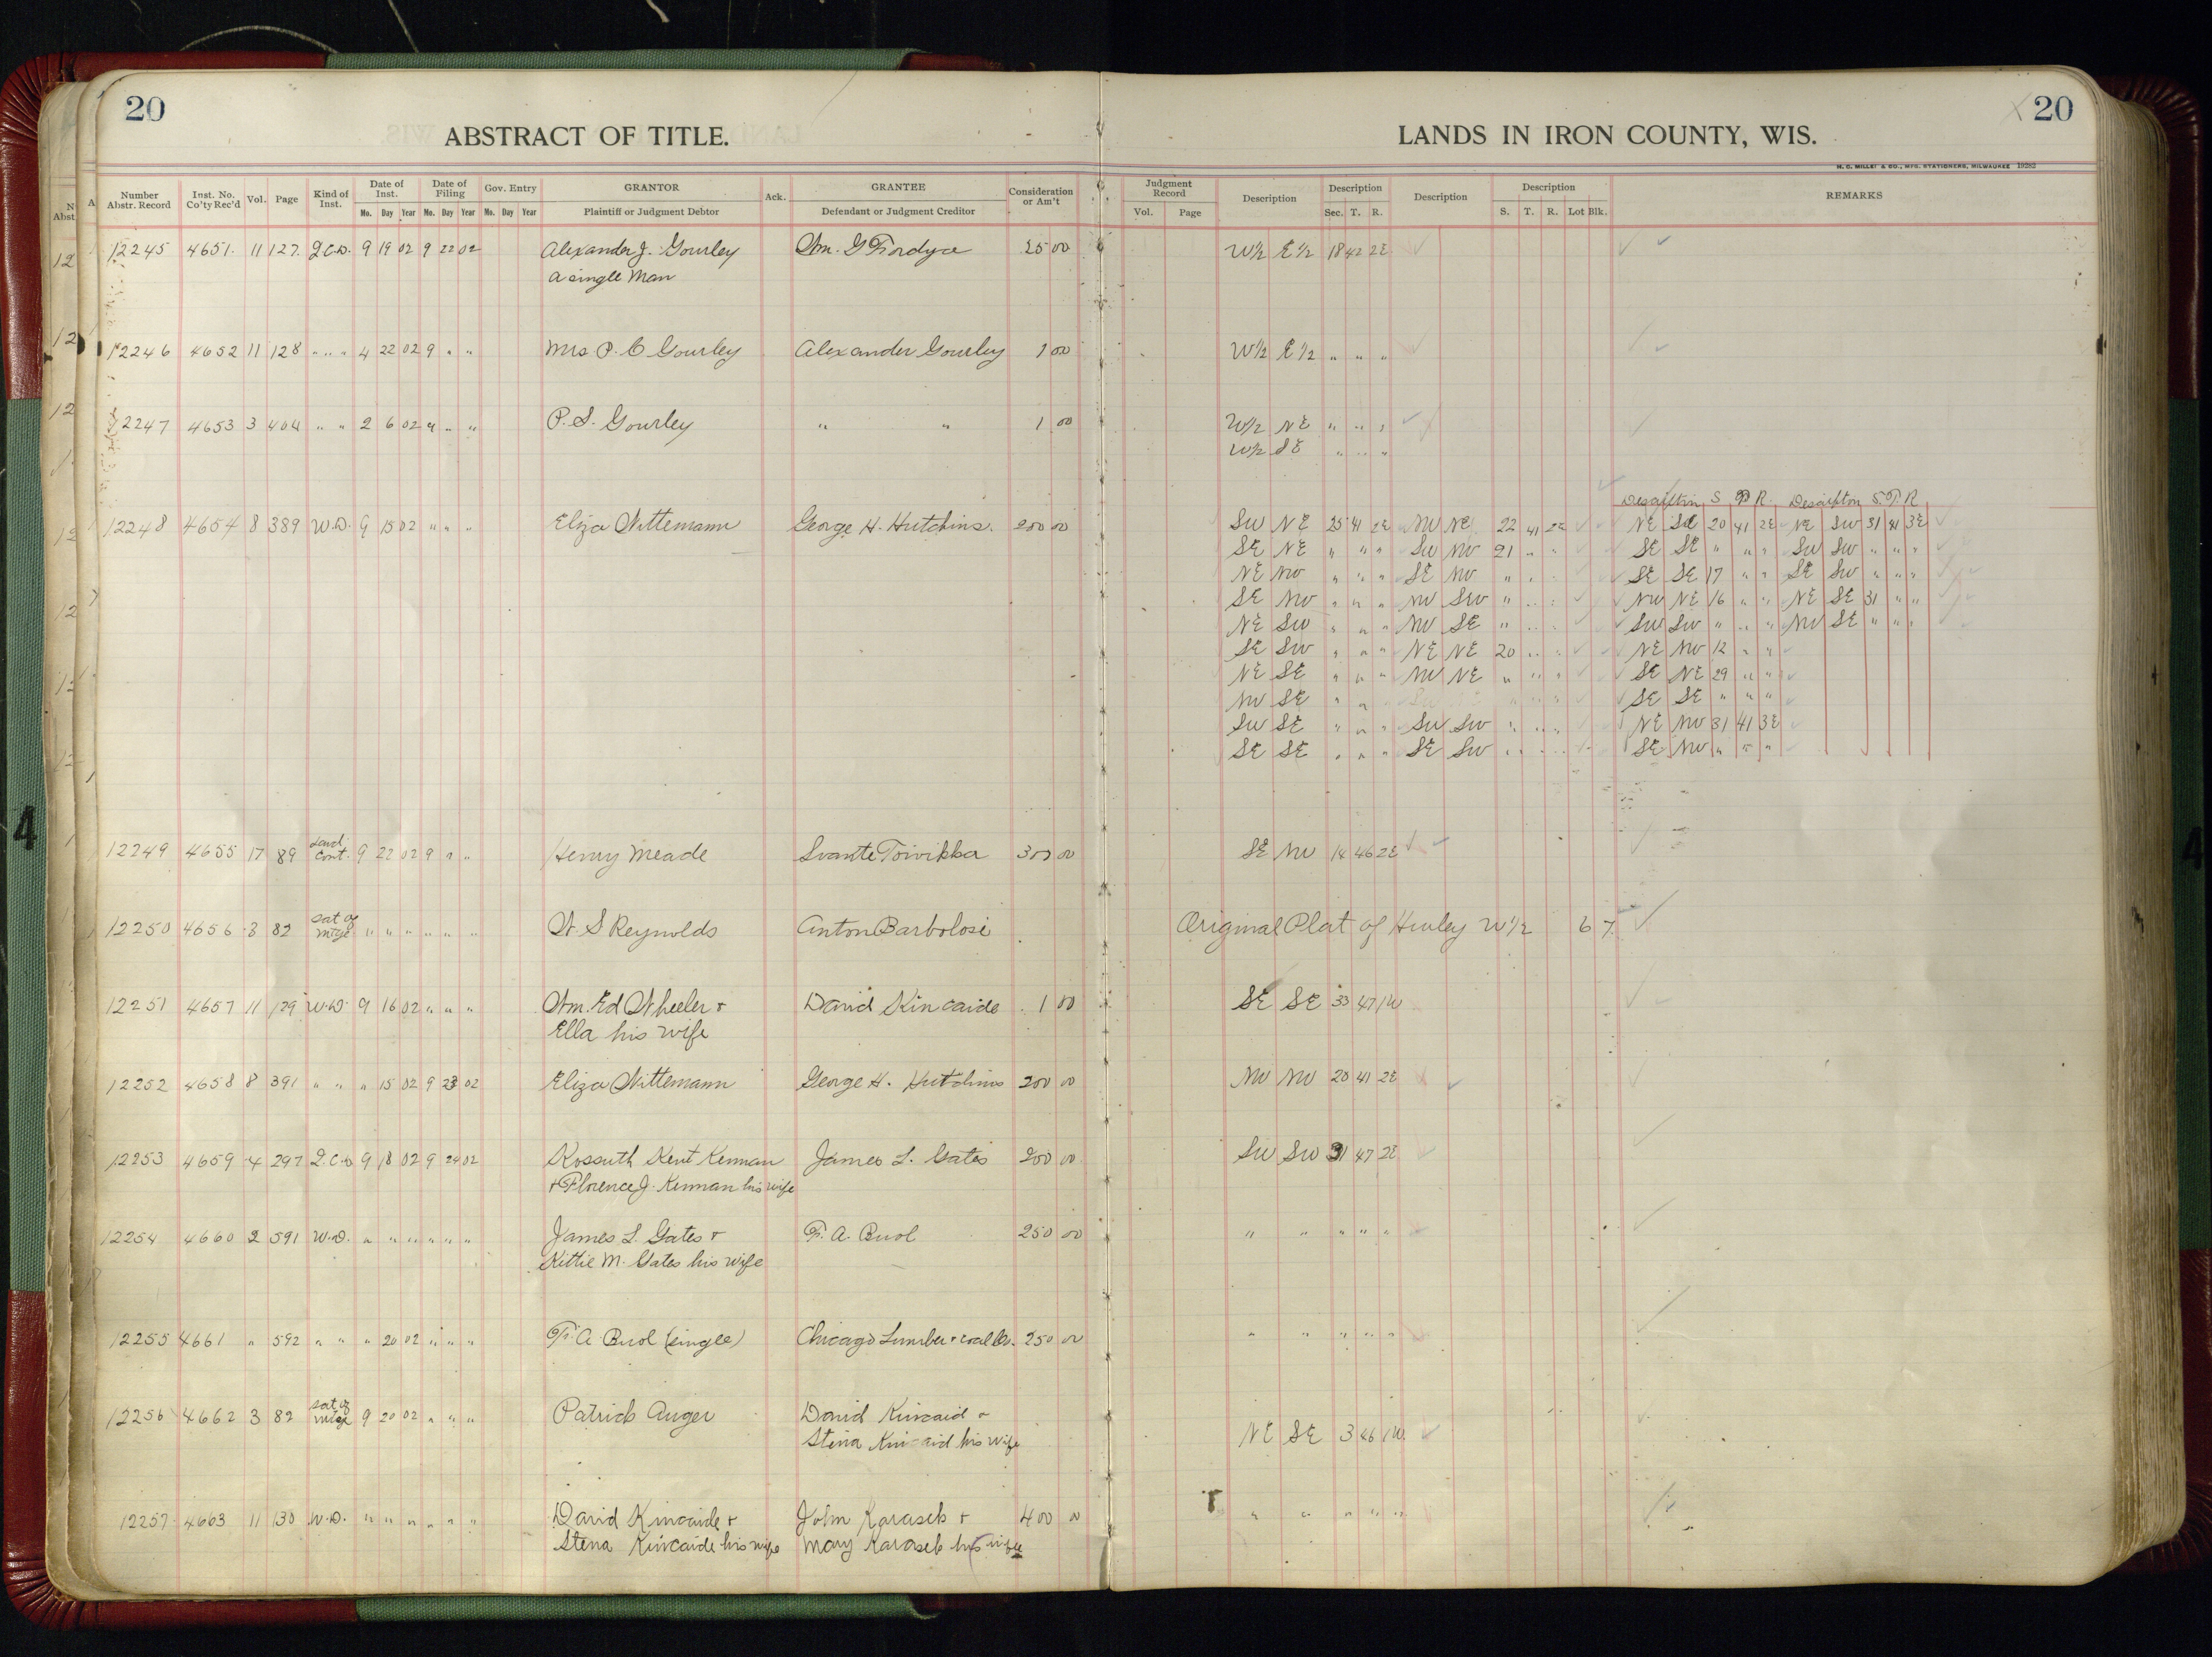 20
ABSTRACT OF TITLE.
LANDS IN IRON COUNTY, WIS.
20
H. C. MILLER & CO., MFG. STATIONERS, MILWAUKEE 19282
Number Abstr. Record Inst. No. Co'ty Rec'd Vol. Page Kind of Inst. Date of Inst. Mo. Day Year Date of Filing Mo. Day Year Gov. Entry Mo. Day Year GRANTOR Plaintiff or Judgment Debtor Ack. GRANTEE Defendant or Judgment Creditor Consideration or Am't
Judgment Record Vol. Page Description Description Sec. T. R. Description Description S. T. R. Lot Blk. REMARKS
12245 4651 11 127 Q.C.D. 9 19 02 9 22 02 Alexander J. Gourley Wm. G Fordyce 25 00 W½ E½ 18 42 2E
a single Man
12246 4652 11 128 " " " 4 22 02 9 " " Mrs P. C Gourley Alexander Gourley 1 00 W½ E½ " " "
12247 4653 3 404 " " 2 6 02 9 " " P. S. Gourley " " 1 00 W½ NE " " "
W½ SE " " "
Description S T R. Description S. T. R
12248 4654 8 389 W.D. 9 15 02 " " " Eliza Wittemann George H. Hutchins. 200 00 SW NE 25 41 2E NW NE 22 41 2E NE SE 20 41 2E NE SW 31 41 3E
SE NE " " " SW NW 21 " " SE SE " " " SW SW " " "
NE NW " " " SE NW " " " SE SE 17 " " SE SW " " "
SE NW " " " NW SW " " " NW NE 16 " " NE SE 31 " "
NE SW " " " NW SE " " " SW SW " " " NW SE " " "
SE SW " " " NE NE 20 " " NE NW 12 " "
NE SE " " " NW NE " " " SE NE 29 " "
NW SE " " SE SE " " "
SW SE " " " SW SW " " " NE NW 31 41 3E
SE SE " " " SE SW " " " SE NW " " "
12249 4655 17 89 Land Cont. 9 22 02 9 " " Henry Meade Svante Toivikka 300 00 SE NW 14 46 2E
12250 4656 3 82 Sat of Mtge " " " " " " W. S Reynolds Anton Barbolosi Original Plat of Hurley W½ 6 7
12251 4657 11 129 W.D. 9 16 02 " " " Wm. Ed Wheeler + David Kincaide 1 00 SE SE 33 47 1W
Ella his wife
12252 4658 8 391 " " " 15 02 9 23 02 Eliza Wittemann George H. Hutchins 200 00 NW NW 20 41 2E
12253 4659 4 297 Q.C.D 9 18 02 9 24 02 Kossuth Kent Kennan James L. Gates 200 00 SW SW 31 47 2E
+ Florence J. Kennan his wife
12254 4660 2 591 W.D. " " " " " " James L Gates + F. A. Buol 250 00 " " " " "
Kittie M. Gates his wife
12255 4661 " 592 " " " 20 02 " " " F. A Buol (single) Chicago Lumber + coal Co. 250 00 " " " " "
12256 4662 3 82 Sat of Mtge 9 20 02 " " " Patrick Auger David Kincaid + NE SE 3 46 1W.
Stena Kincaid his wife
12257 4663 11 130 W.D. " " " " " " David Kincaide + John Karasek + 400 00 " " " " "
Stena Kincaide his wife Mary Karasek his wife